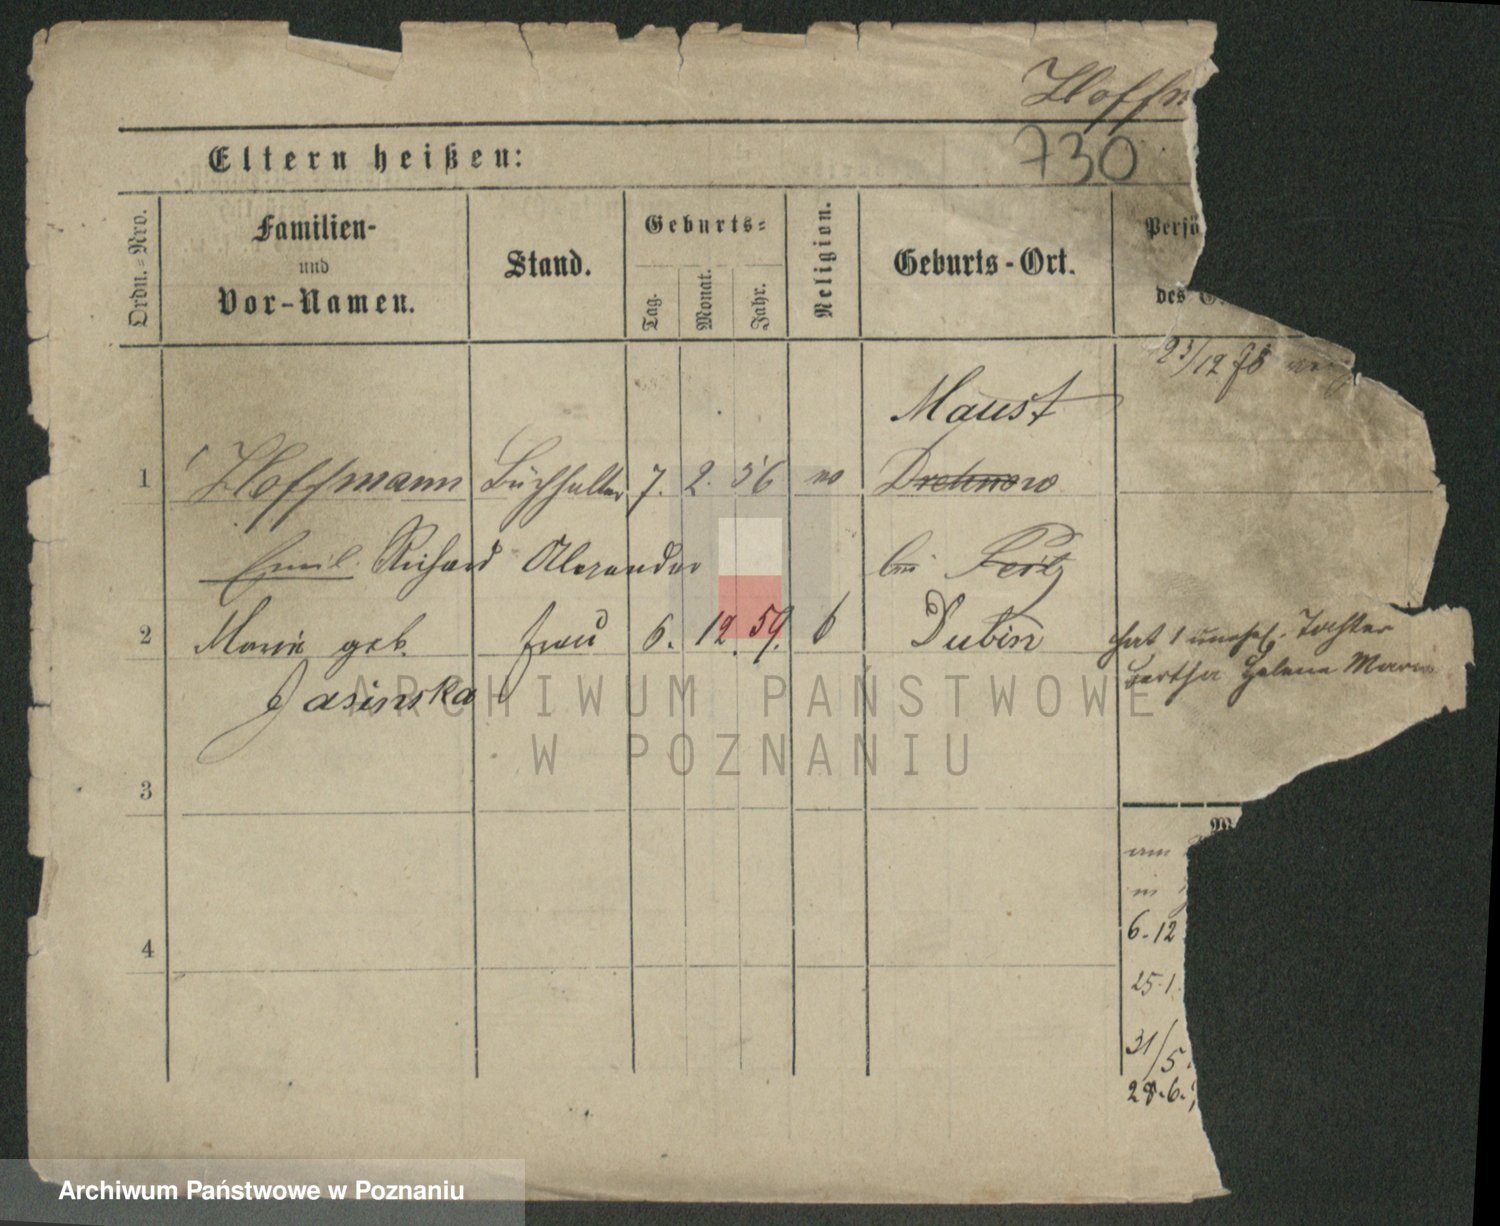 Hoffm
730
Eltern heißen:
Ordn.-Nro.
Familien-
und
Vor-Namen.
Stand.
Geburts-
Tag.
Monat.
Jahr.
Religion.
Geburts-Ort.
Persö
des G
23/12 78
Maust
1 Hoffmann Buchhalter 7. 2. 56 Drehnow
Emil Richard Alexander bei Peitz
2 Marie geb. Frau 6. 12. 59. Dubin hat 1 unehel. Tochter
Jasinska Bertha Helene Marie
ARCHIWUM PAŃSTWOWE
W POZNANIU
3
am
in
6.12
4
25.1.
31/5.
28.6.
Archiwum Państwowe w Poznaniu